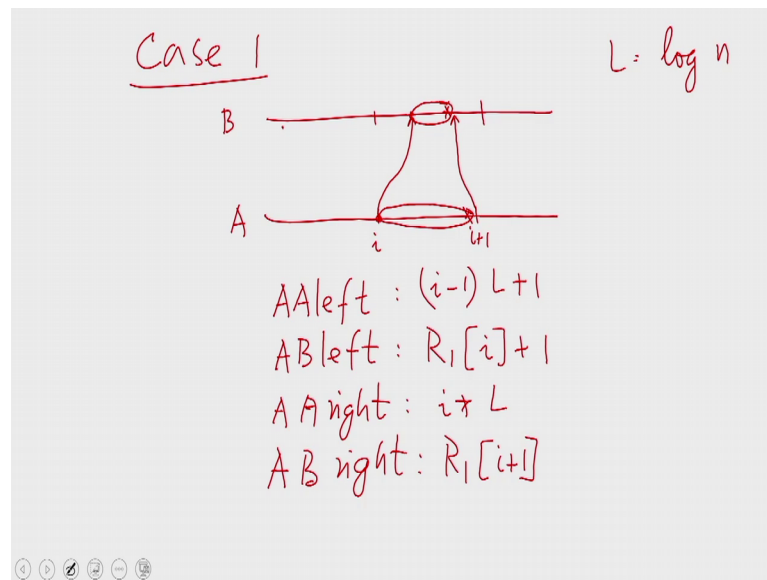 Case 1
L = log n
B
A
i i+1
AAleft : (i-1) L+1
ABleft : R₁[i]+1
AAright : i* L
ABright : R₁[i+1]